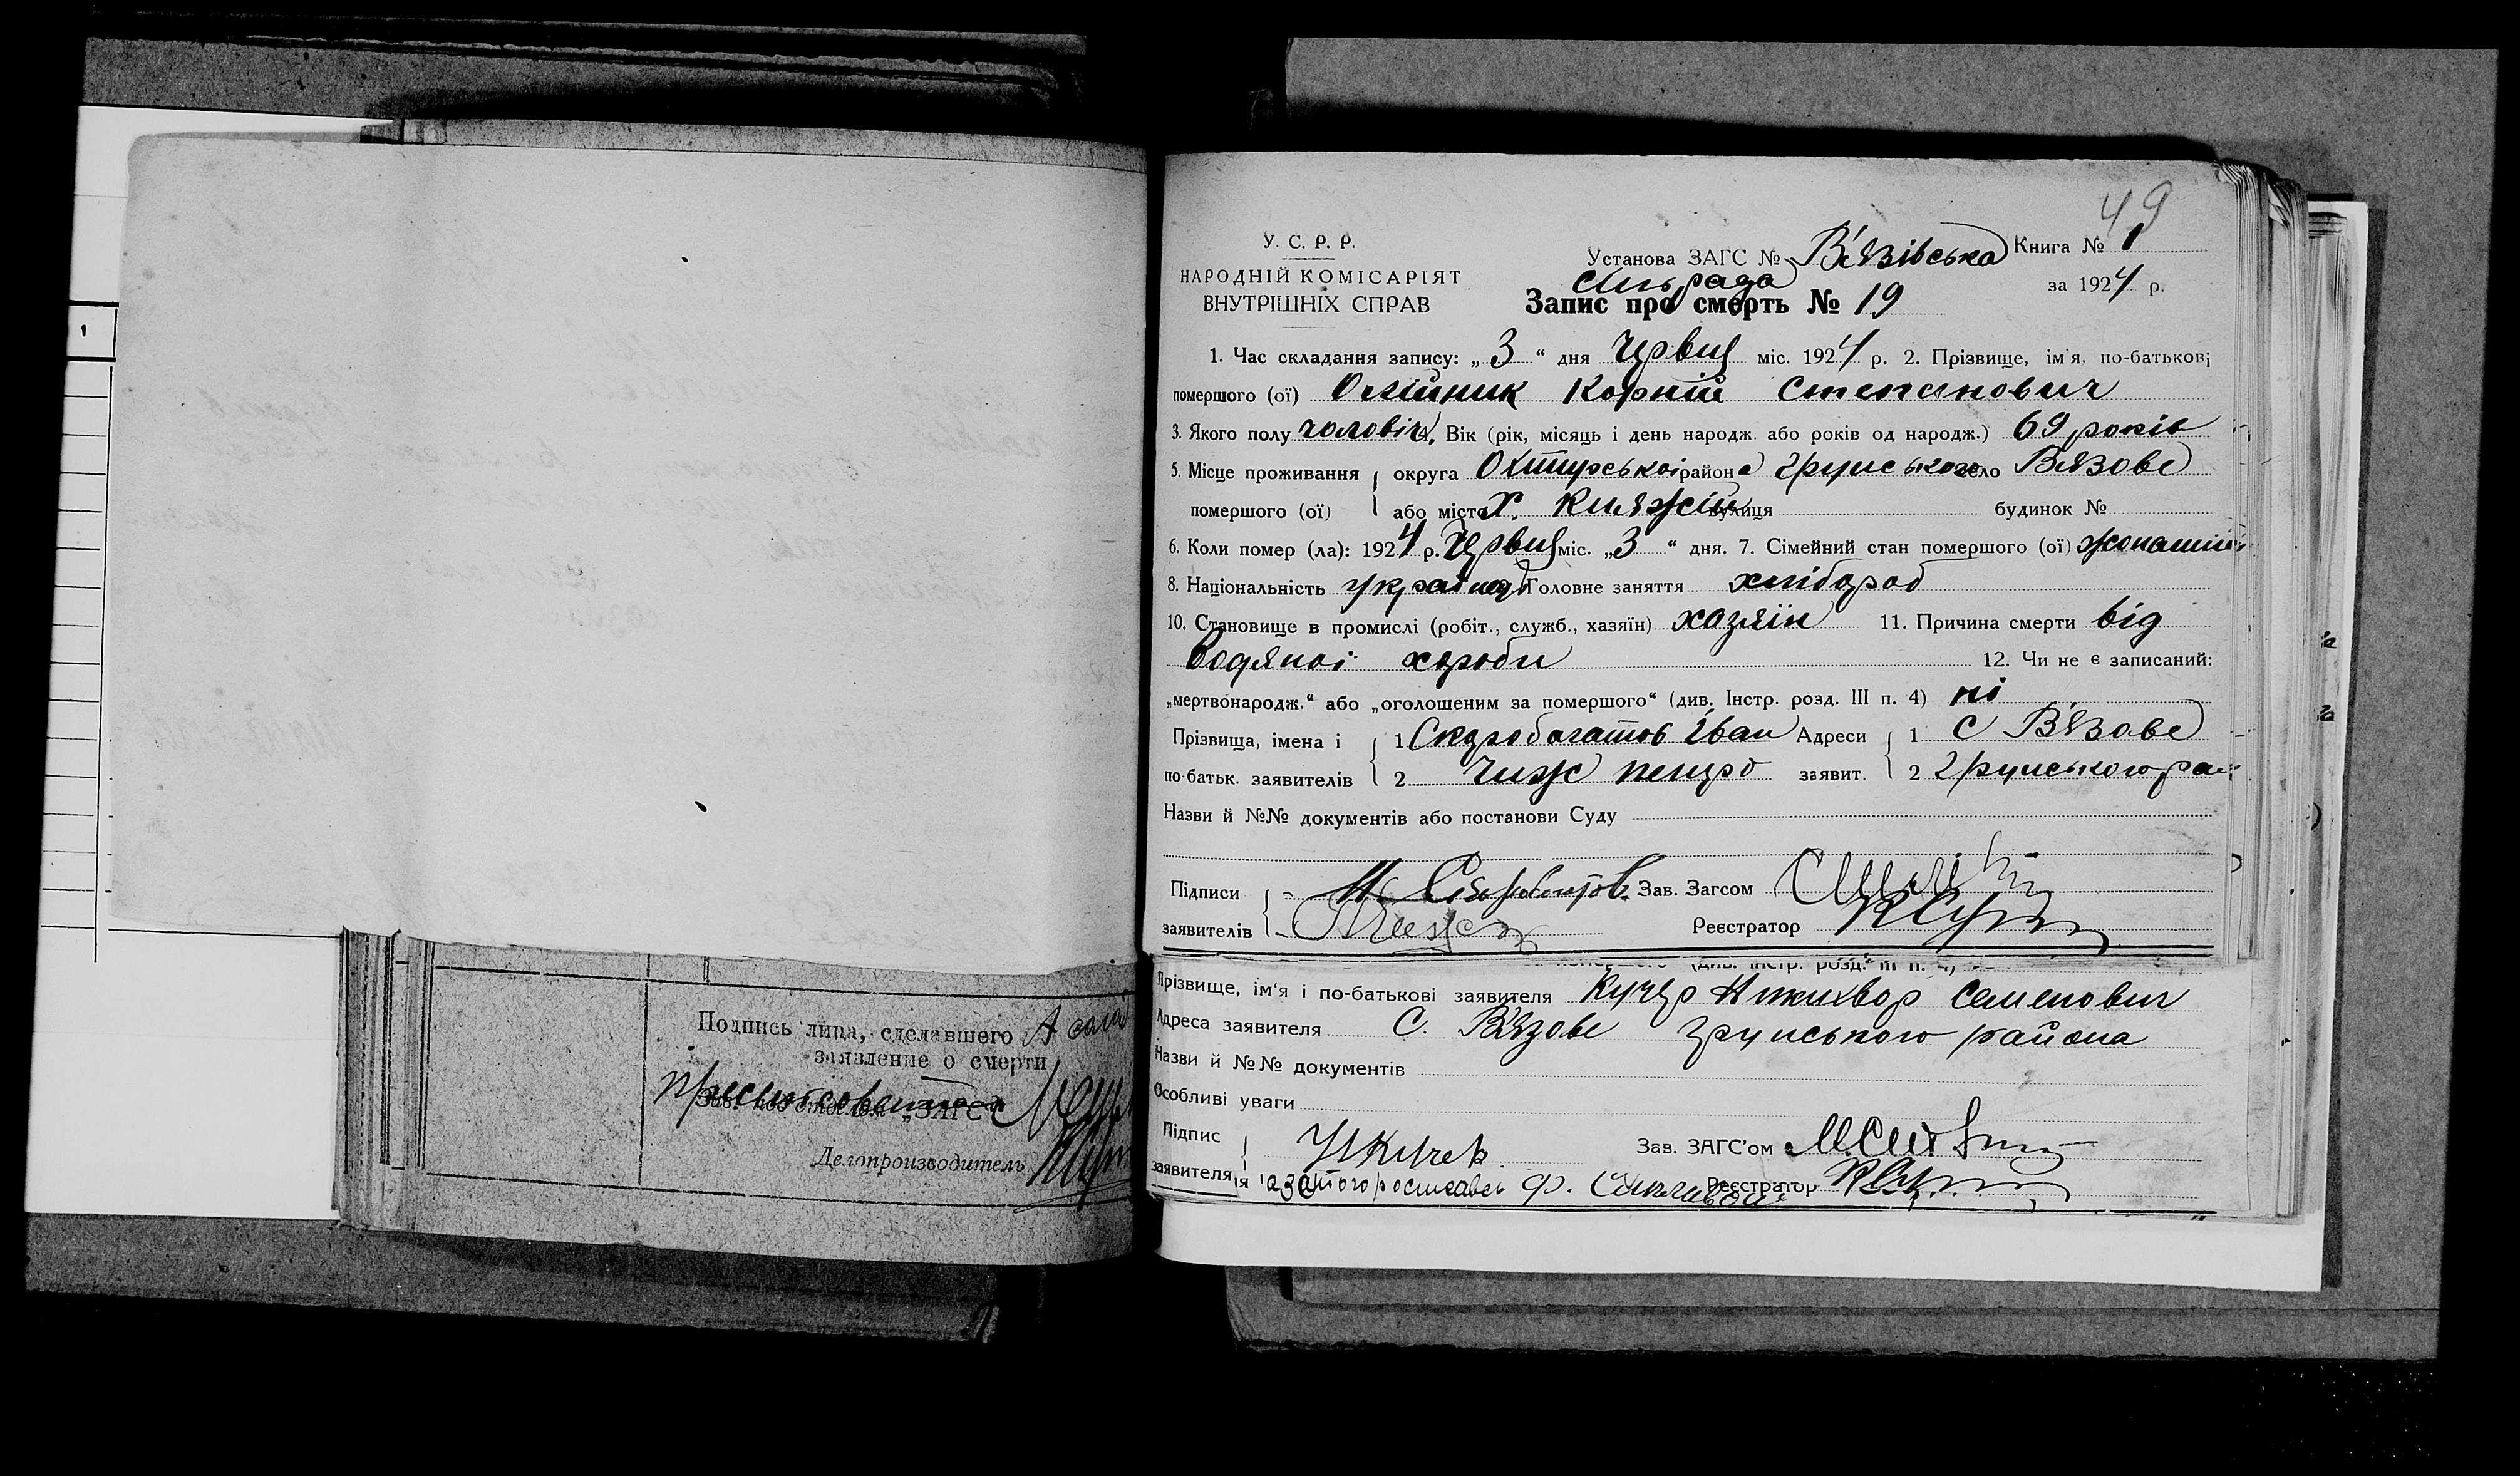 1
49
У. С. Р. Р.
НАРОДНІЙ КОМІСАРІЯТ
ВНУТРІШНІХ СПРАВ
Установа ЗАГС № В'язівська Книга № 1
сільрада за 1924 р.
Запис про смерть № 19
1. Час складання запису: „ 3 “ дня Червця міс. 1924 р. 2. Прізвище, ім'я, по-батькові
помершого (ої) Олійник Корній Степанович
3. Якого полу чоловіч. Вік (рік, місяць і день народж. або років од народж.) 69 років
5. Місце проживання округа Охтирської района Грунського село Вязове
помершого (ої) або місто х. Княжій вулиця будинок №
6. Коли помер (ла): 1924 р. Червця міс. „ 3 “ дня. 7. Сімейний стан помершого (ої) жонатий
8. Національність українец Головне заняття хлібороб
10. Становище в промислі (робіт., служб., хазяїн) хазяїн 11. Причина смерти від
водяної хороби 12. Чи не є записаний:
„мертвонародж.“ або „оголошеним за помершого“ (див. Інстр. розд. III п. 4) ні
Прізвища, імена і 1 Скоробогатов Іван Адреси 1 с В'язове
по-батьк. заявителів 2 Чиж Петро заявит. 2 Грунського рай
Назви й №№ документів або постанови Суду
Підписи Зав. Загсом
заявителів Реєстратор
(див. Інстр. розд. III п. 4)
Прізвище, ім'я і по-батькові заявителя Кучер Никихвор Семенович
Адреса заявителя С. В'язове Грунського района
Назви й №№ документів
Особливі уваги
Підпис Зав. ЗАГС'ом
заявителя Реєстратор
Подпись лица, сделавшего
заявление о смерти
Зав. под'отделом „ЗАГС“
Делопроизводитель